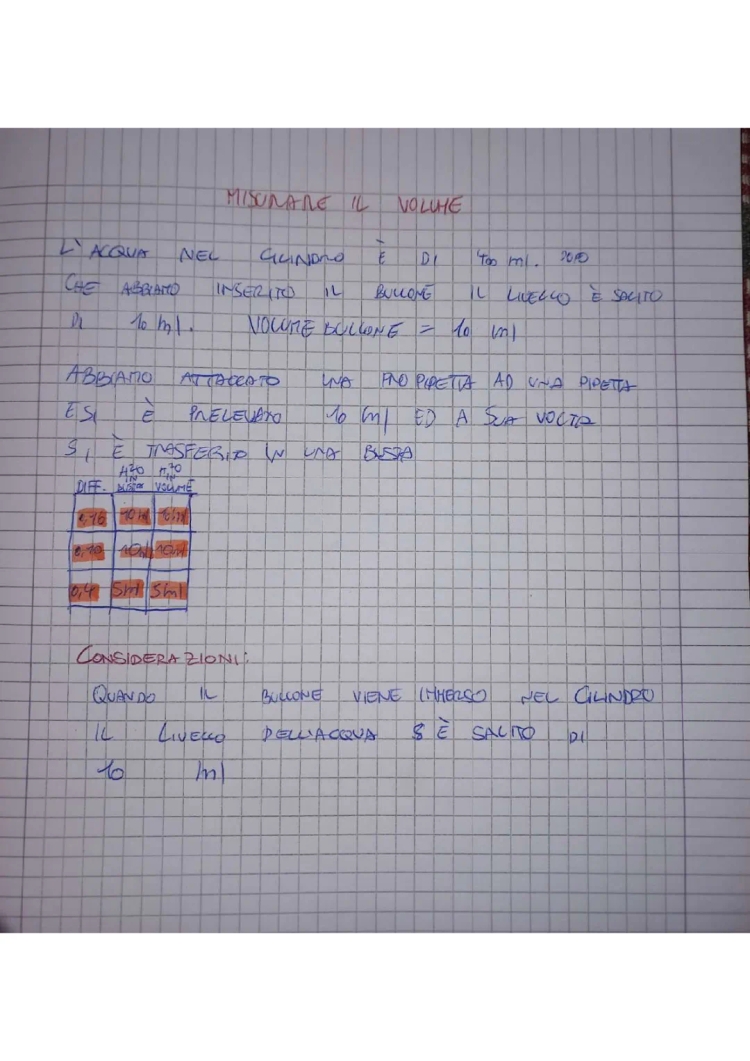 MISURARE IL VOLUME
L'ACQUA NEL CILINDRO È DI 400 ml. DOPO
CHE ABBIAMO INSERITO IL BULLONE IL LIVELLO È SALITO
DI 10 ml. VOLUME BULLONE = 10 ml
ABBIAMO ATTACCATO UNA PROPIPETTA AD UNA PIPETTA
E SI È PRELEVATO 10 ml ED A SUA VOLTA
SI È TRASFERITO IN UNA
H20 H20
DIFF. IN IN VOLUME
10ml 10ml
10ml 10ml
0,4 5ml 5ml
CONSIDERAZIONI:
QUANDO IL BULLONE VIENE IMMERSO NEL CILINDRO
IL LIVELLO DELL'ACQUA È SALITO DI
10 ml